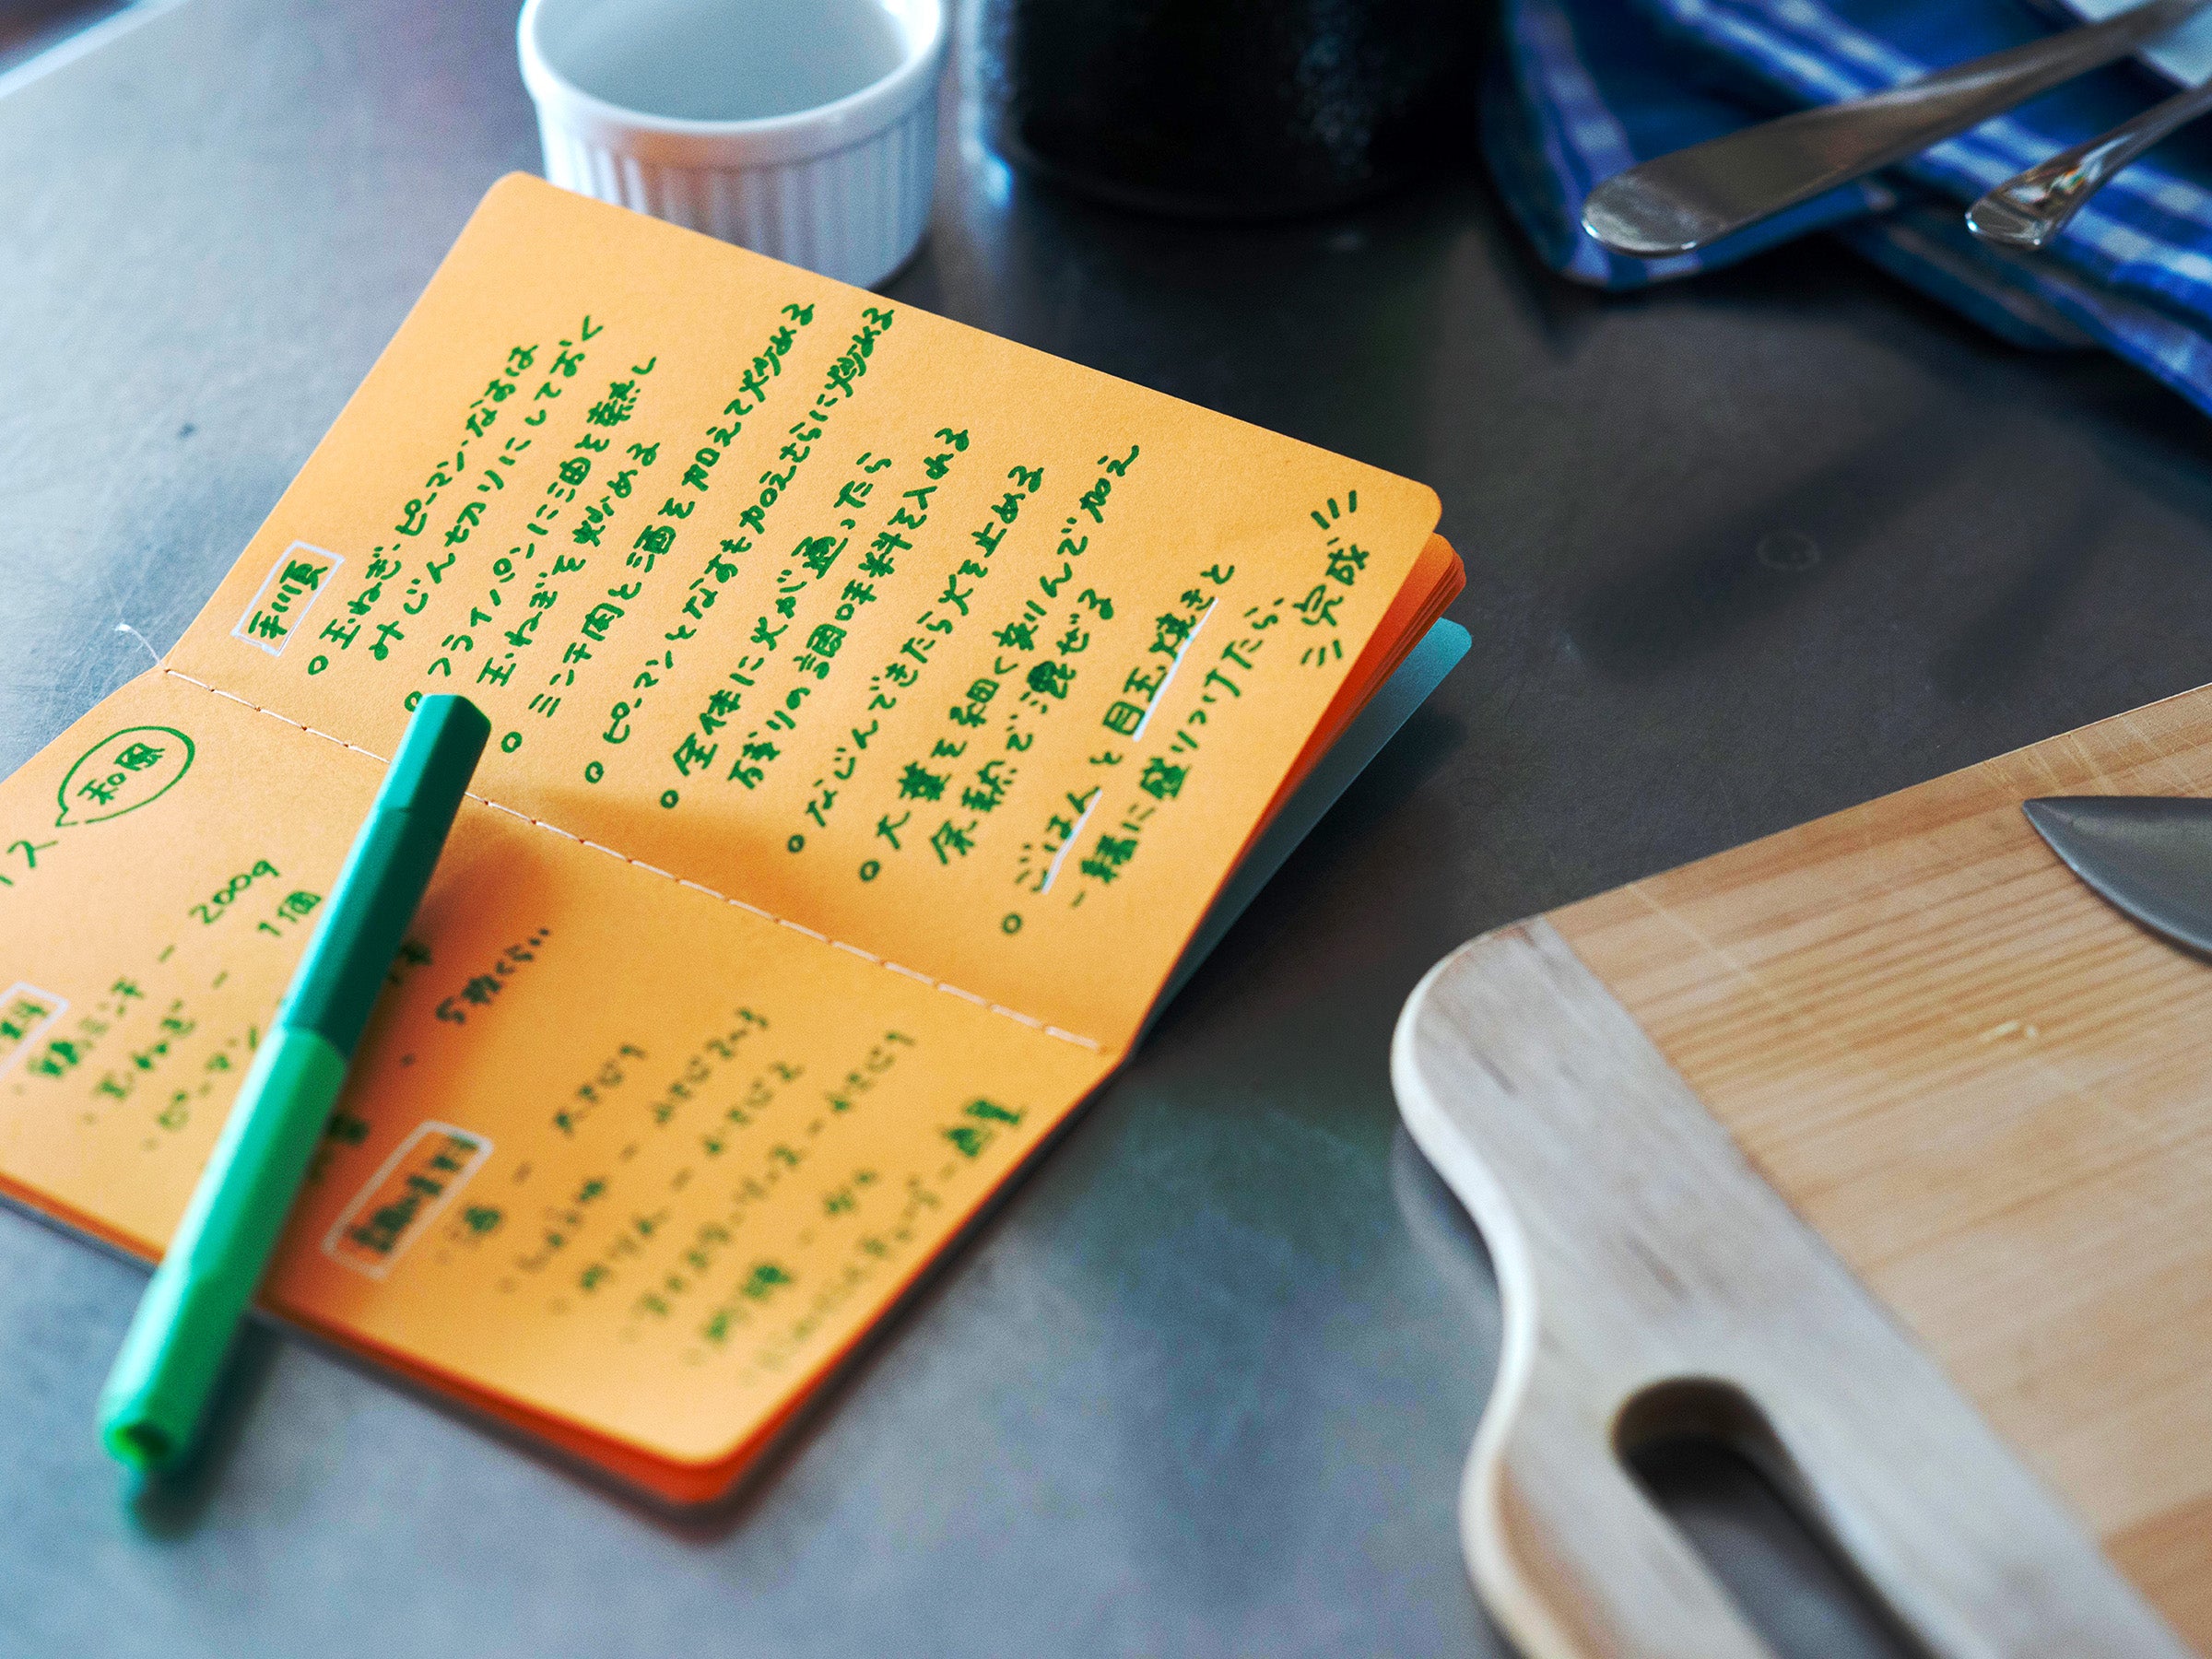 和風
イス
料
・鶏ミンチ - 200g
・玉ねぎ - 1個
・ピーマン
5枚くらい
調味料
・酒 - 大さじ1
・しょうゆ - 大さじ2〜3
・みりん - 大さじ2
・オイスターソース - 大さじ1
・砂糖 - 少々
手順
○ 玉ねぎ・ピーマン・なすは
みじん切りにしておく
○ フライパンに油を熱し
玉ねぎを炒める
○ ミンチ肉と酒を加えて炒める
○ ピーマンとなすも加えさらに炒める
○ 全体に火が通ったら
残りの調味料を入れる
○ なじんできたら火を止める
○ 大葉を細く刻んで加え
余熱で混ぜる
○ ごはんと目玉焼きと
一緒に盛りつけたら、
完成